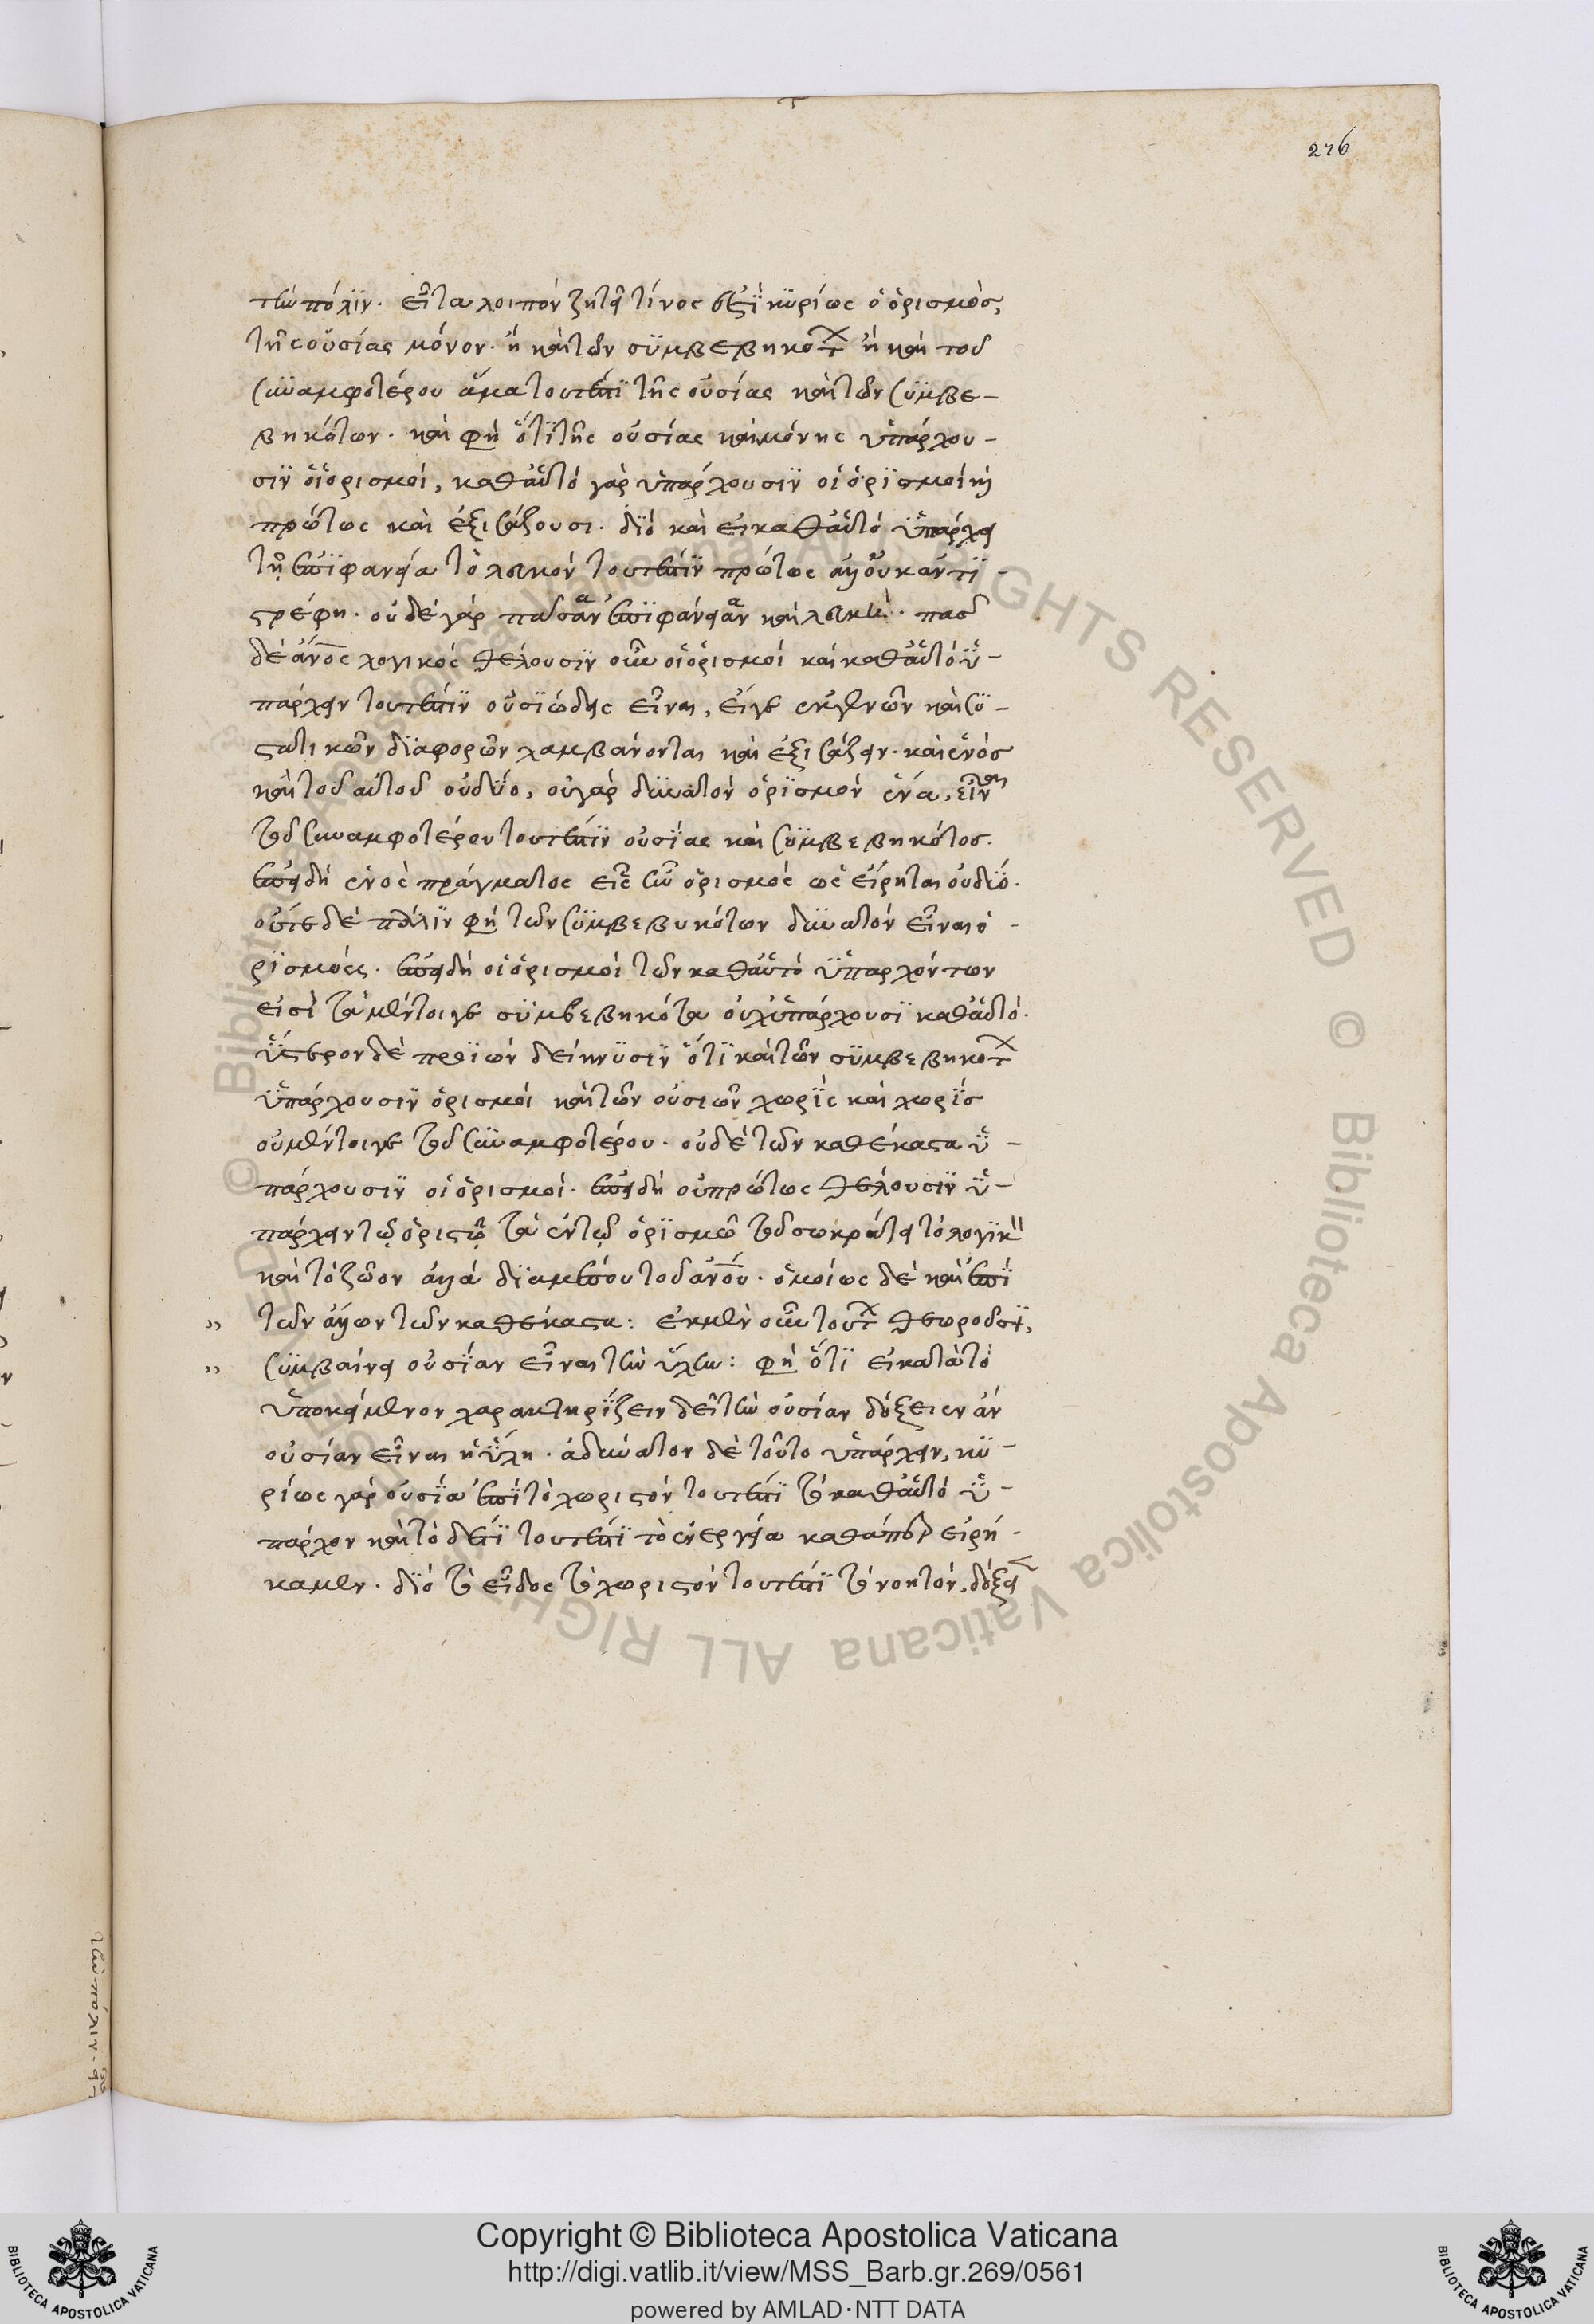 276
τὴν πόλιν. εἶτα λοιπὸν ζητεῖ τίνος ἐστὶ κυρίως ὁ ὁρισμὸς,
τῆς οὐσίας μόνον. ἢ καὶ τῶν συμβεβηκότων ἢ καὶ τοῦ
συναμφοτέρου ἅμα τουτέστι τῆς οὐσίας καὶ τῶν συμβε-
βηκότων. καὶ φησὶ ὅτι τῆς οὐσίας καὶ μόνης ὑπάρχου-
σιν οἱ ὁρισμοί, καθ' αὑτό γὰρ ὑπάρχουσιν οἱ ὁρισμοί καὶ
πρώτως καὶ ἐξισάζουσι. διό καὶ εἰ καθ' αὑτό ὑπάρχει
τῇ ἐπιφανείᾳ τὸ λευκόν τουτέστιν πρώτως ἀλλ' οὐκ ἀντι-
στρέφη. οὐδὲ γὰρ πᾶσαν ἐπιφάνειαν καὶ λευκὴ. πᾶς
δὲ ἄνος λογικός θέλουσιν οὖν οἱ ὁρισμοί καὶ καθ' αὑτό ὑ-
πάρχειν τουτέστιν οὐσιώδης εἶναι, εἴγε ἐκ γενῶν καὶ συ-
στατικῶν διαφορῶν λαμβάνονται καὶ ἐξισάζειν. καὶ ἑνός
καὶ τοῦ αὐτοῦ οὐ δύο, οὐ γὰρ δυνατόν ὁρισμόν ἕνα, εἶναι
τοῦ συναμφοτέρου τουτέστιν οὐσίας καὶ συμβεβηκότος.
ἐπειδὴ ἑνὸς πράγματος εἷς ἦν ὁρισμός ὡς εἴρηται οὐ δύο.
οὔτε δὲ πάλιν φησὶ τῶν συμβεβυκότων δυνατόν εἶναι ὁ-
ρισμοὺς. ἐπειδὴ οἱ ὁρισμοί τῶν καθ' αὑτό ὑπαρχόντων
εἰσὶ τὰ μέντοιγε συμβεβηκότα οὐχ ὑπάρχουσι καθ' αὑτό.
ὕστερον δὲ προϊών δείκνυσιν ὅτι καὶ τῶν συμβεβηκότων
ὑπάρχουσιν ὁρισμοί καὶ τῶν οὐσιῶν χωρὶς καὶ χωρίς
οὐ μέντοιγε τοῦ συναμφοτέρου. οὐδὲ τῶν καθέκαστα ὑ-
πάρχουσιν οἱ ὁρισμοί. ἐπειδὴ οὐ πρώτως θέλουσιν ὑ-
πάρχειν τῷ ὁριστῷ τὰ ἐν τῷ ὁρισμῶ τοῦ σωκράτει τὸ λογικὸν
καὶ τὸ ζῶον ἀλλὰ διαμέσου τοῦ ἀνου. ὁμοίως δὲ καὶ ἐπὶ
„ τῶν ἄλλων τῶν καθέκαστα: ἐκ μὲν οὖν τούτων θεωροῦσι,
„ συμβαίνει οὐσίαν εἶναι τὴν ὕλην: φησὶ ὅτι εἰ κατὰ τὸ
ὑποκείμενον χαρακτηρίζειν δεῖ τὴν οὐσίαν δόξειεν ἂν
οὐσίαν εἶναι ἡ ὕλη. ἀδύνατον δὲ τοῦτο ὑπάρχειν, κυ-
ρίως γὰρ οὐσία ἐπὶ τὸ χωριστόν τουτέστι τὸ καθ' αὑτό ὑ-
πάρχον καὶ τὸ δὲ τί τουτέστι τὸ ἐνεργείᾳ καθάπερ εἰρή-
καμεν. διό τὸ εἶδος τὸ χωριστόν τουτέστι τὸ νοητόν, δόξει
Copyright © Biblioteca Apostolica Vaticana
http://digi.vatlib.it/view/MSS_Barb.gr.269/0561
powered by AMLAD·NTT DATA